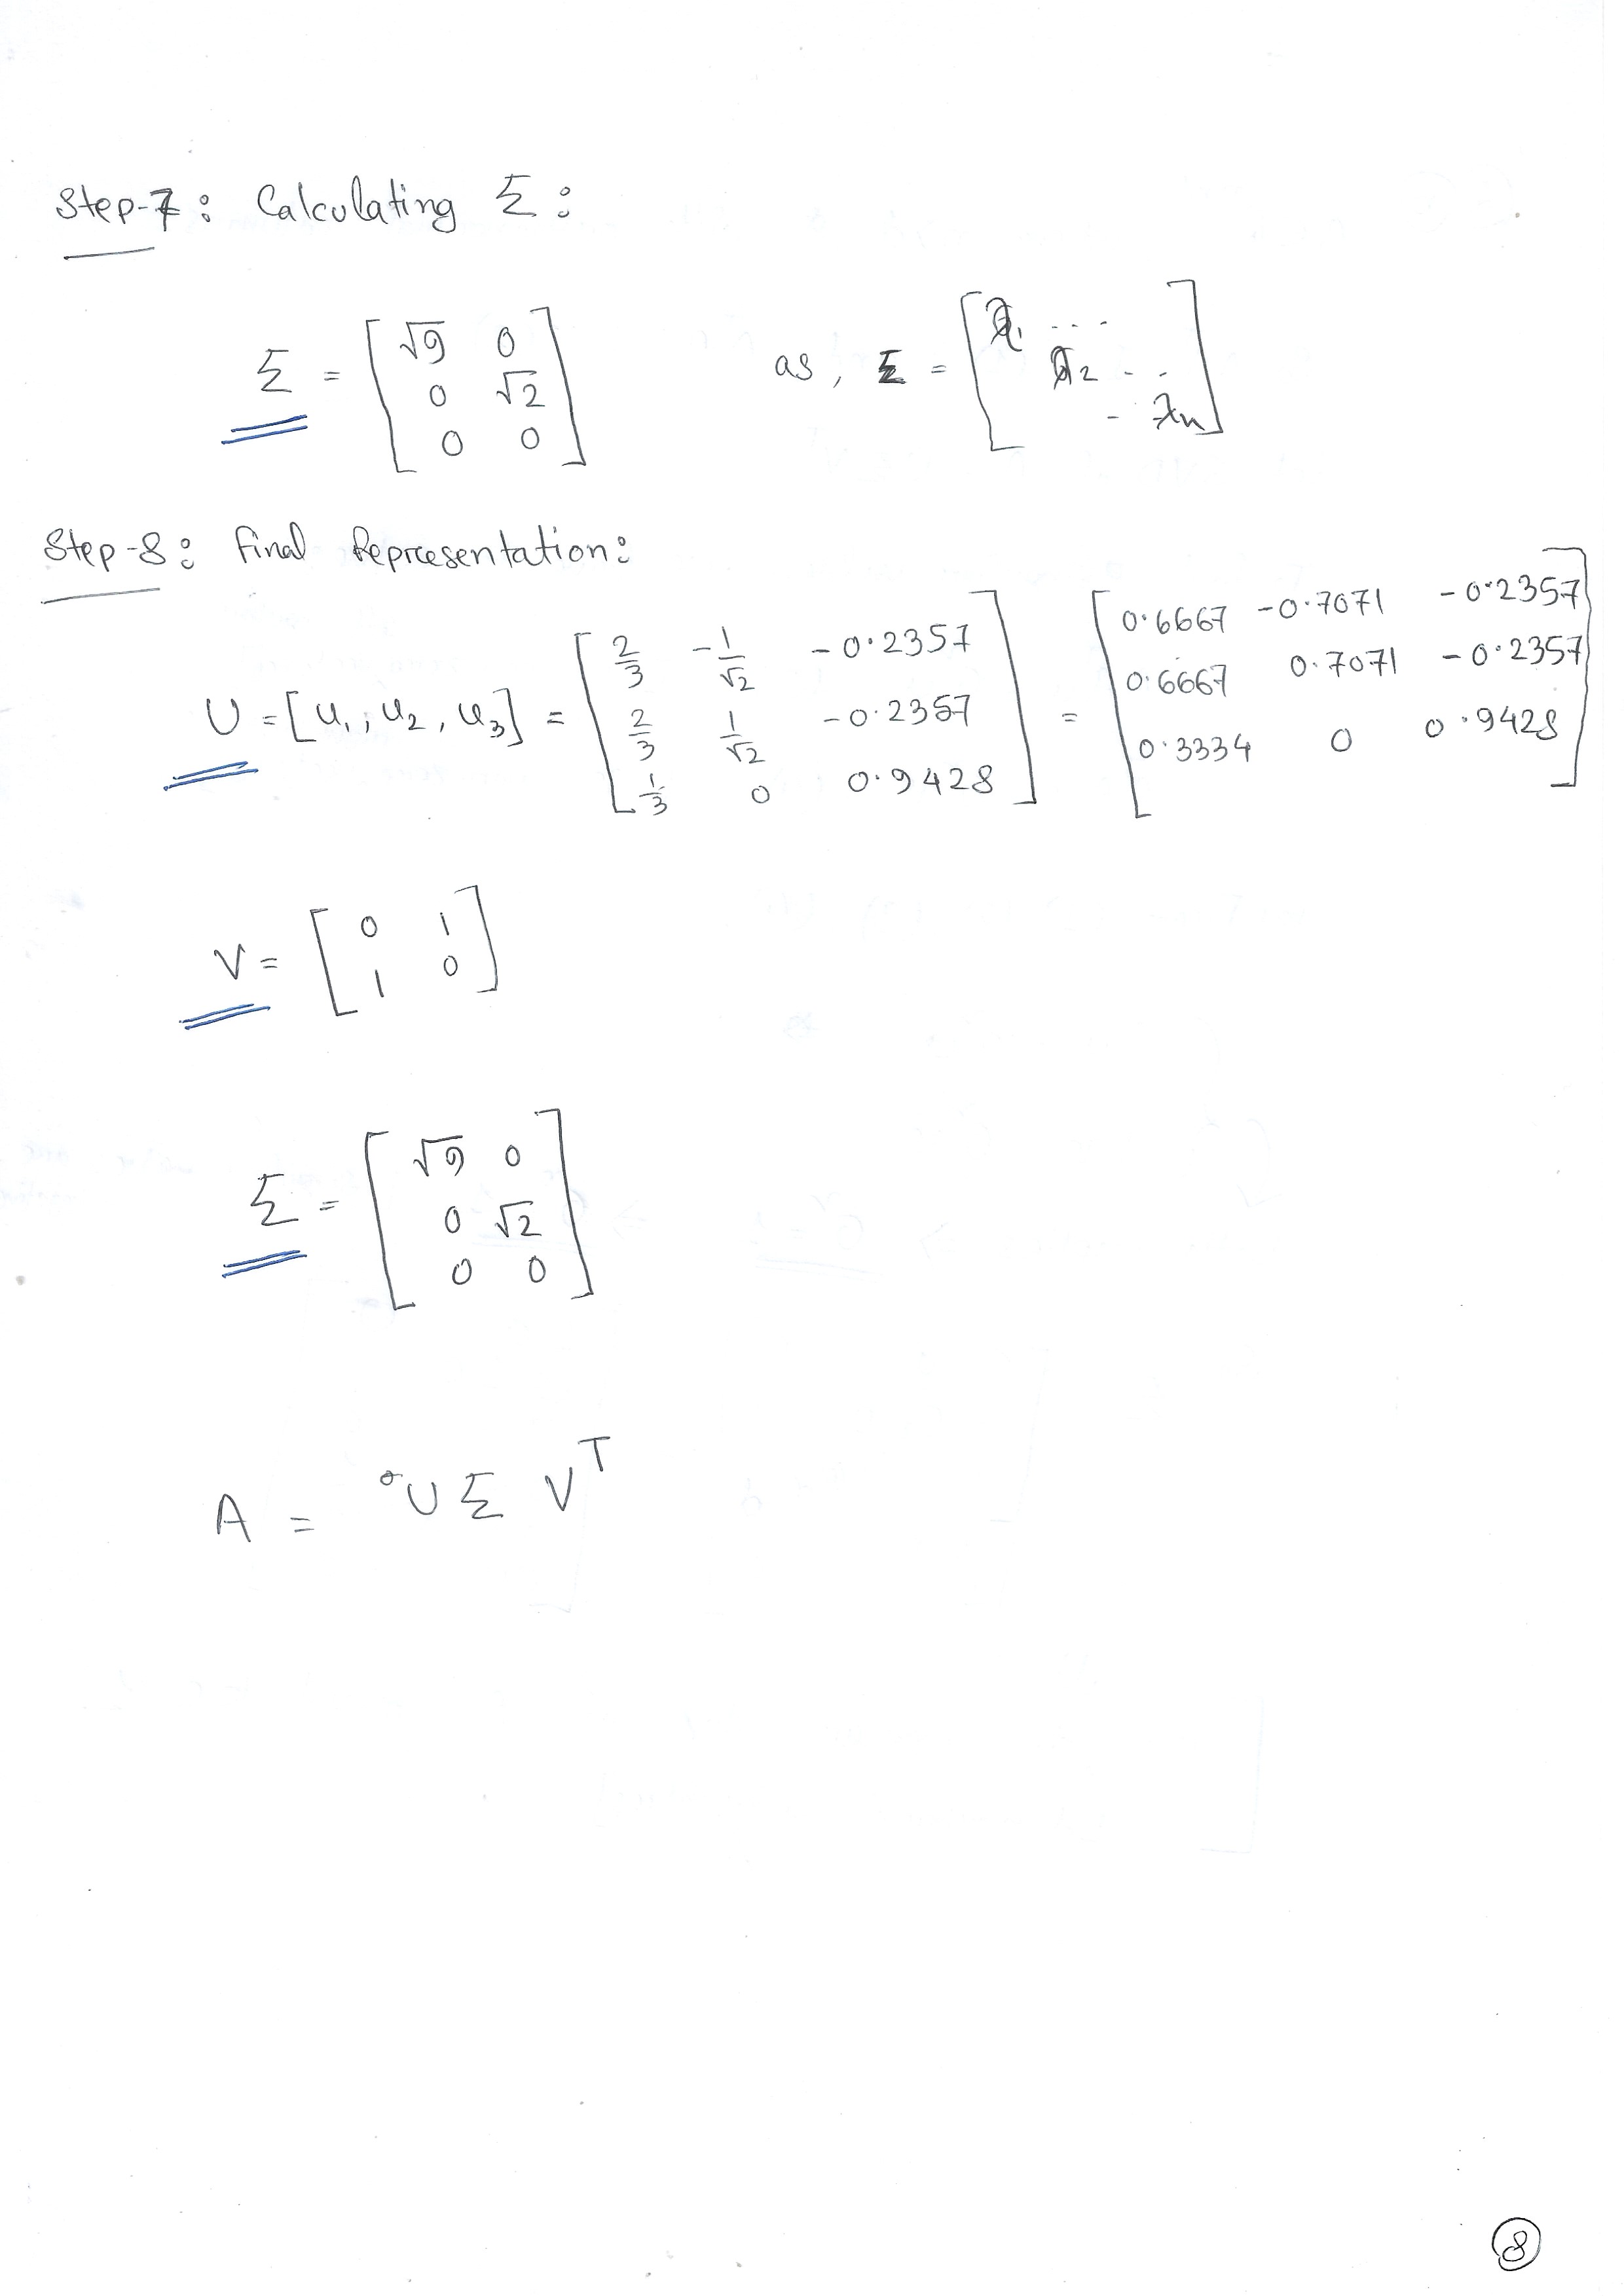 Step-7: Calculating Σ:
Σ = [√9 0
0 √2
0 0] as, Σ = [λ1 ...
λ2 ..
- λn]
Step-8: Final Representation:
U = [u1, u2, u3] = [2/3 -1/√2 -0.2357
2/3 1/√2 -0.2357
1/3 0 0.9428] = [0.6667 -0.7071 -0.2357
0.6667 0.7071 -0.2357
0.3334 0 0.9428]
V = [0 1
1 0]
Σ = [√9 0
0 √2
0 0]
A = U Σ V^T
8